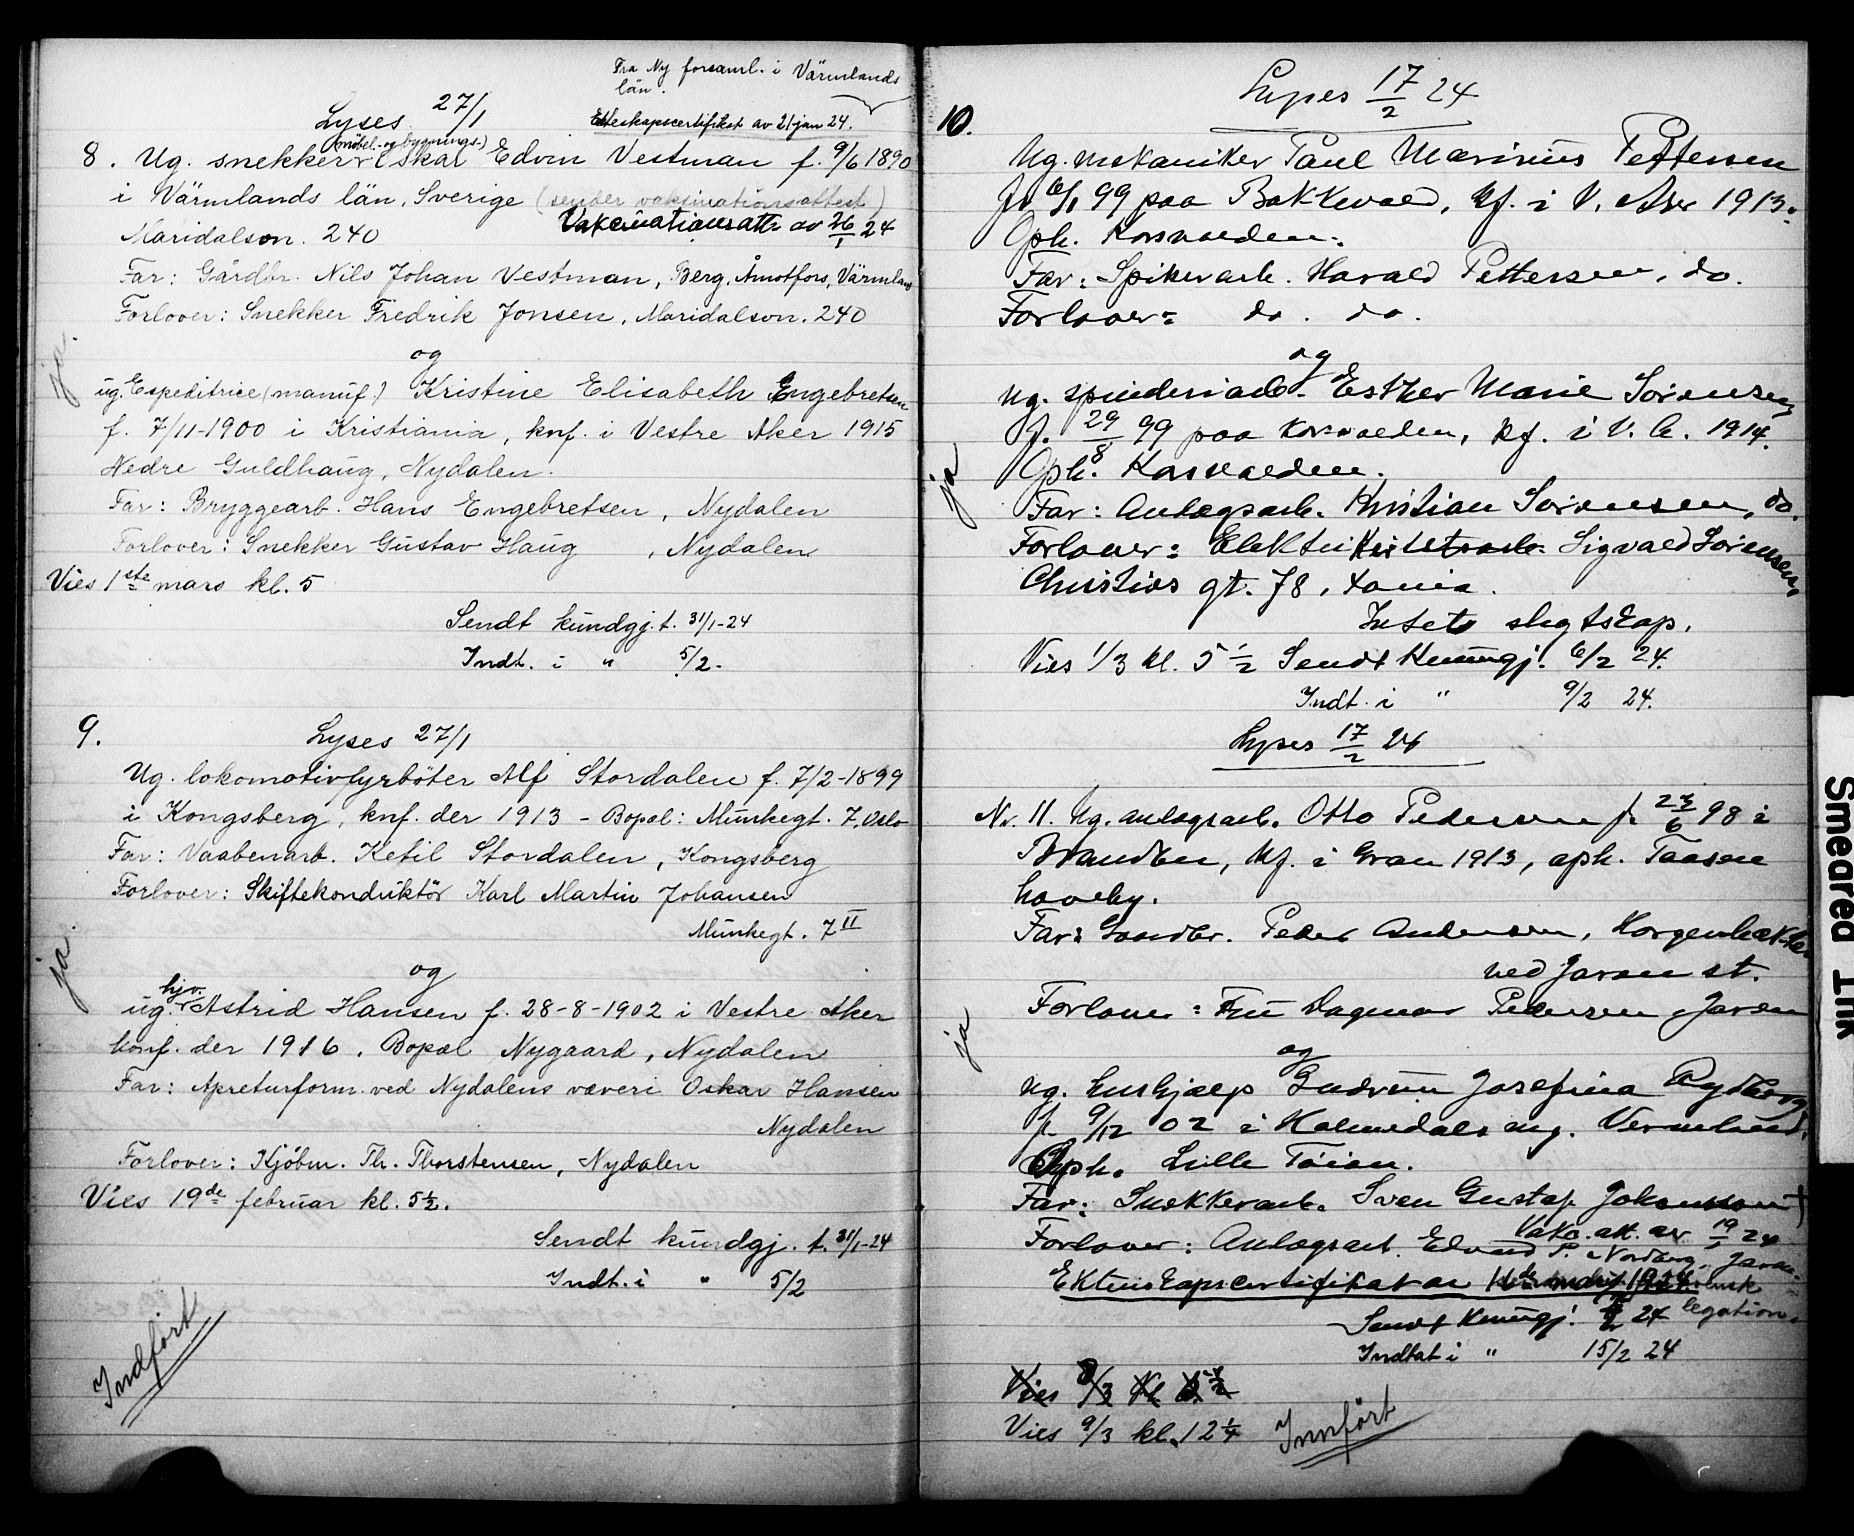 Fra Ny forsaml. i Värmlands
län.
Lyses 27/1
Ekteskapscertifikat av 21 jan 24.
(møbel- og bygnings-)
8. Ug. snekker Oskar Edvin Vestman f. 9/6 1890
i Värmlands län, Sverige (sender vaksinationsattest)
Maridalsvn. 240
Vakcinationsatt. av 26/1 24
Far: Gårdbr. Nils Johan Vestman, Berg, Åmotfors, Värmland
Forlover: Snekker Fredrik Jonsen, Maridalsvn. 240
ja.
og
ug. Expeditrice (manuf.) Kristine Elisabeth Engebretsen
f. 7/11-1900 i Kristiania, knf. i Vestre Aker 1915
Nedre Guldhaug, Nydalen.
Far: Bryggearb. Hans Engebretsen, Nydalen
Forlover: Snekker Gustav Haug, Nydalen
Vies 1ste mars kl. 5
Sendt kundgj. t. 31/1-24
Indt. i " 5/2.
9.
Lyses 27/1
Ug. lokomotivfyrbøter Alf Stordalen f. 7/2-1899
i Kongsberg, knf. der 1913 - Bopæl: Munkegt. 7, Oslo
Far: Vaabenarb. Ketil Stordalen, Kongsberg
Forlover: Skiftekonduktör Karl Martin Johansen
Munkegt. 7 II
ja.
og
hjv.
ug. Astrid Hansen f. 28-8-1902 i Vestre Aker
konf. der 1916. Bopæl Nygaard, Nydalen
Far: Apreturform. ved Nydalens væveri Oskar Hansen
Nydalen
Forlover: Kjøbm. Th. Thorstensen, Nydalen
Vies 19de februar kl. 5 1/2.
Sendt kundgj. t. 31/1-24
Indt. i " 5/2
Indført
Lyses 17/2 24
10.
Ug. mekaniker Paul Marinius Pettersen
f. 6/1 99 paa Bakkevold, kf. i V. Aker 1913.
Oph. Korsvolden.
Far: Spikerarb. Harald Pettersen, do.
Forlover: do. do.
og
Ug. spinderiarb. Esther Marie Sørensen
f. 29/8 99 paa Korsvolden, kf. i V. A. 1914.
ja
Oph. Korsvolden.
Far: Anlægsarb. Kristian Sørensen, do.
Forlover: Sigvald Sørensen,
Christies gt. 78, Xania.
Intet slegtskap.
Vies 1/3 kl. 5 1/2 Sendt Kunngj. 6/2 24.
Indt. i " 9/2 24.
Lyses 17/2 24
Nr. 11. Ug. anlægsarb. Otto Pedersen f. 23/6 98 i
Brandbu, kf. i Gran 1913, oph. Taasen
haveby.
Far: Peder Andersen,
ved Jaren st.
Forlover: Fru Dagmar Pedersen, Jaren
ja
og
Ug. hushjælp Gudrun Josefina Rydberg
f. 9/12 02 i Holmedals sog. Vermland.
Oph. Lille Tøien.
Far: Snekkerarb. Sven Gustaf Johansson †
Vakc. att. av 19/1 24
Forlover: Anlægsarb. Edvard P. Nordberg, Jaren.
Ekteskapscertifikat av
legation.
Sendt Kunngj. 24
Indtat i " 15/2 24
Vies 8/3 Kl. 5 1/2
Vies 9/3 kl. 12 1/4
Innført
Smeared Ink